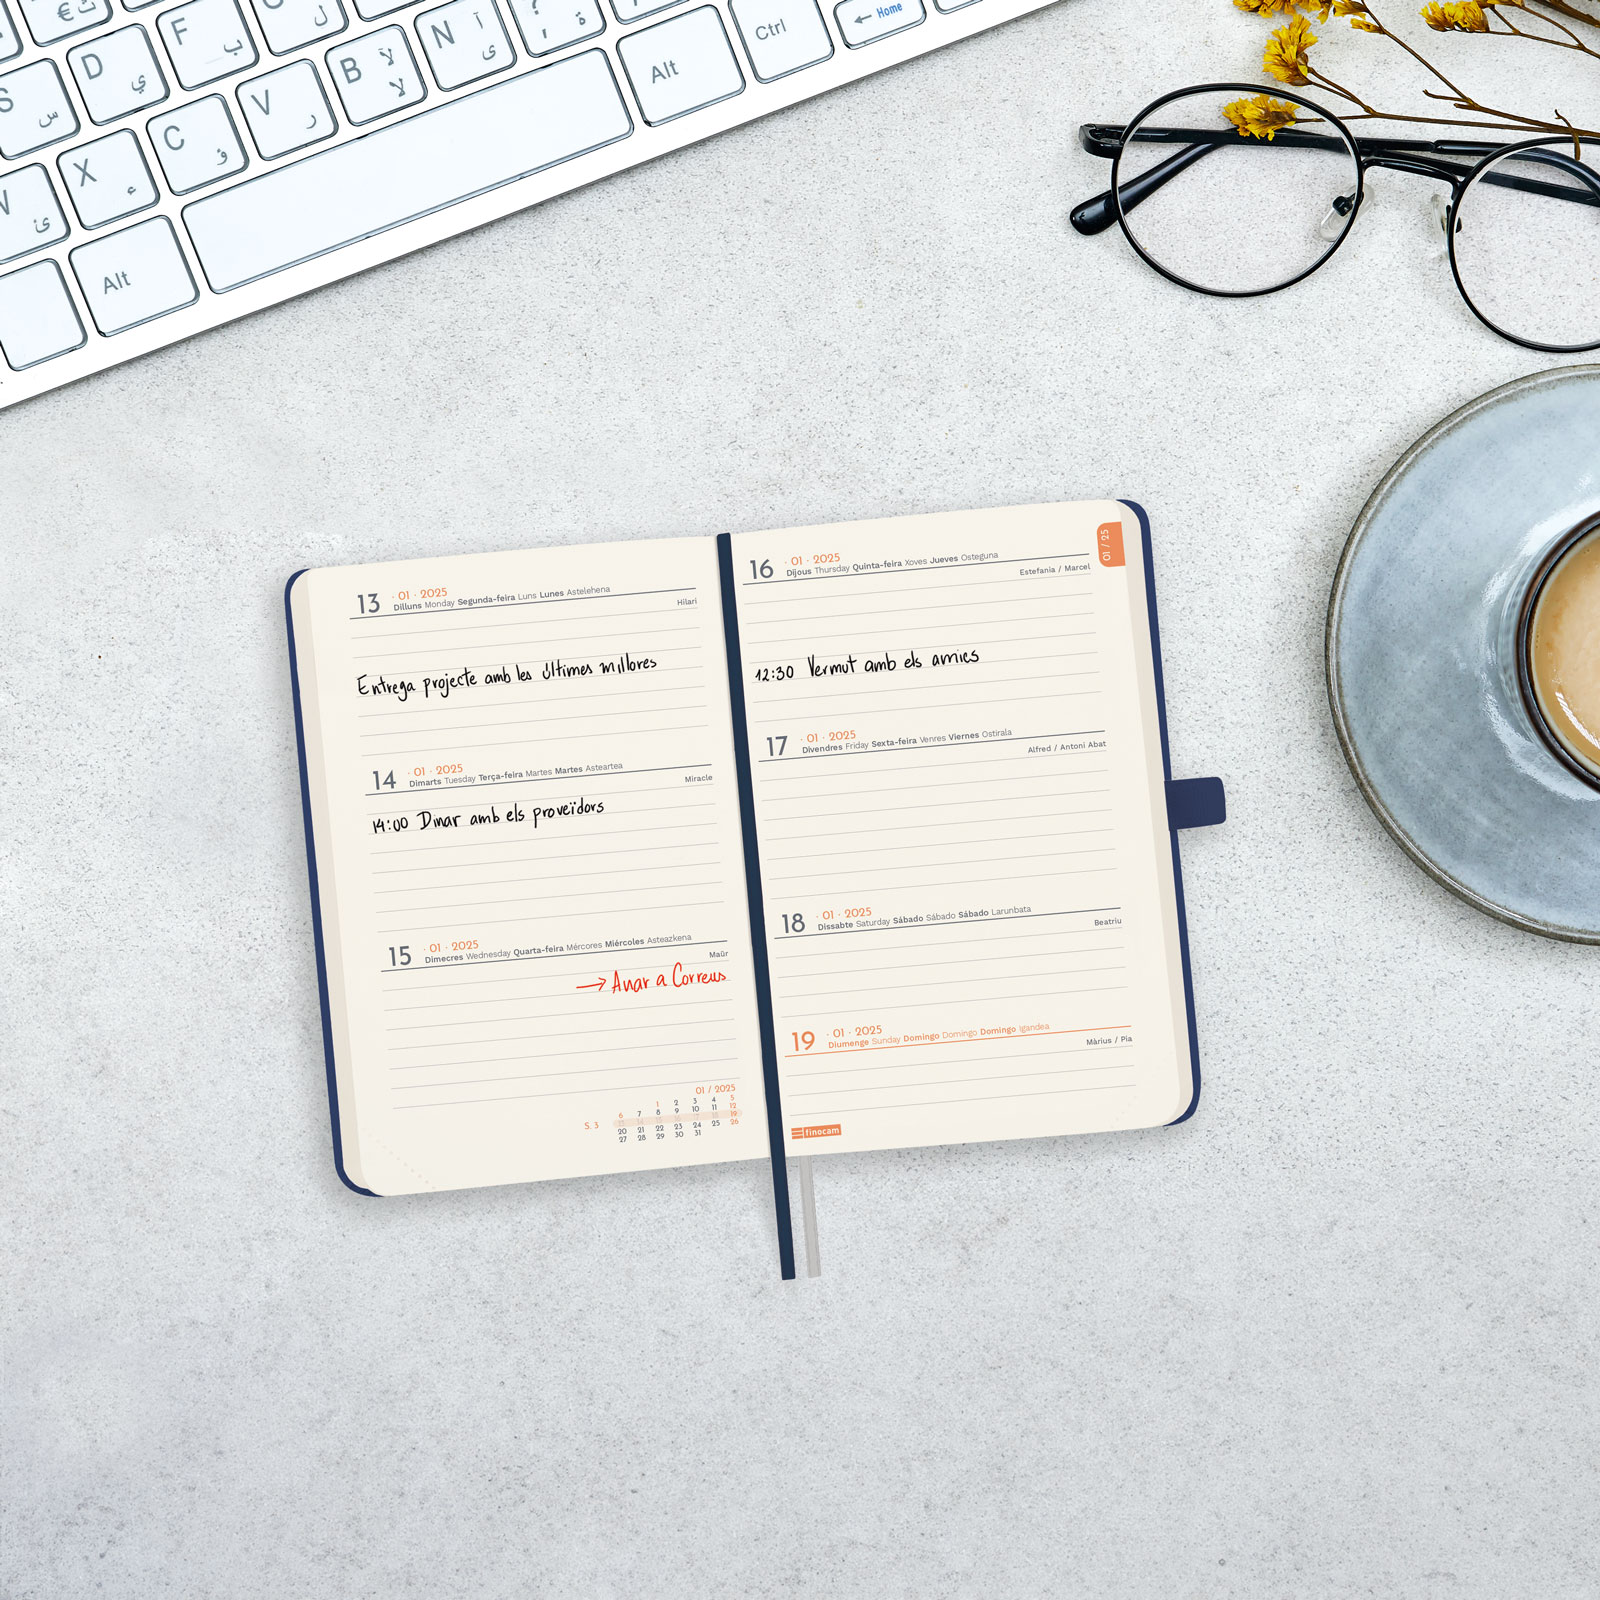 € ث
D ي
F ب
ل
S س
X ء
C ؤ
V ر
B لآ لا
N آ ى
؟ ة
ئ
Alt
Alt
Ctrl
← Home
13 · 01 · 2025
Dilluns Monday Segunda-feira Luns Lunes Astelehena
Hilari
Entrega projecte amb les últimes millores
14 · 01 · 2025
Dimarts Tuesday Terça-feira Martes Martes Asteartea
Miracle
14:00 Dinar amb els proveïdors
15 · 01 · 2025
Dimecres Wednesday Quarta-feira Mércores Miércoles Asteazkena
Maür
→ Anar a Correus
01 / 2025
1 2 3 4 5
6 7 8 9 10 11 12
S. 3 13 14 15 16 17 18 19
20 21 22 23 24 25 26
27 28 29 30 31
01 / 25
16 · 01 · 2025
Dijous Thursday Quinta-feira Xoves Jueves Osteguna
Estefania / Marcel
12:30 Vermut amb els amics
17 · 01 · 2025
Divendres Friday Sexta-feira Venres Viernes Ostirala
Alfred / Antoni Abat
18 · 01 · 2025
Dissabte Saturday Sábado Sábado Sábado Larunbata
Beatriu
19 · 01 · 2025
Diumenge Sunday Domingo Domingo Domingo Igandea
Màrius / Pia
finocam